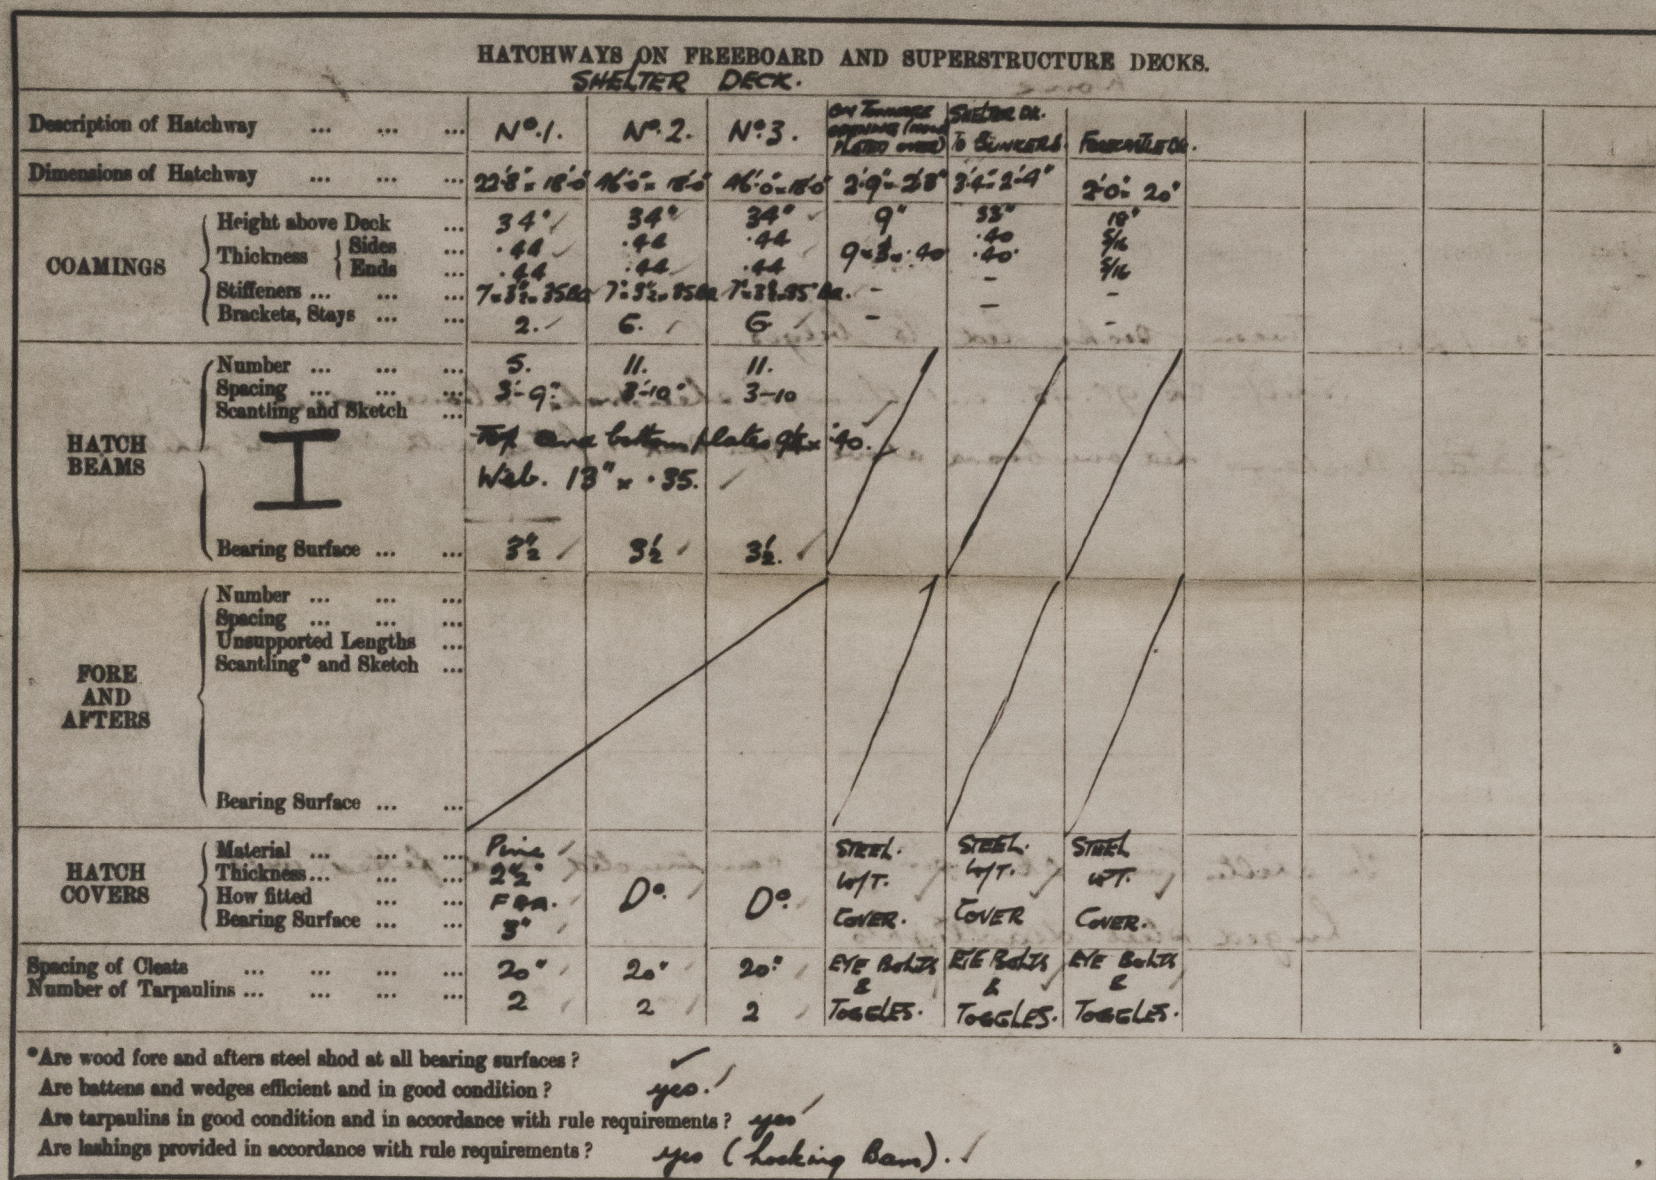 HATCHWAYS ON FREEBOARD AND SUPERSTRUCTURE DECKS.
SHELTER DECK.
Description of Hatchway ... ... ... Nº.1. Nº.2. Nº.3. ON TONNAGE OPENING (NOW PLATED OVER) SHELTER DK. TO BUNKERS. FORECASTLE DK.
Dimensions of Hatchway ... ... ... 22'-8" × 18'-0" 46'-0" × 18'-0" 46'-0" × 18'-0" 2'-9" × 2'-8" 3'-4" × 2'-9" 2'-0" × 20"
COAMINGS
Height above Deck ... 34" 34" 34" 9" 33" 18"
Thickness Sides ... .44 .44 .44 9 × 3 × .40 .40 5/16
Ends ... .44 .44 .44 .40 5/16
Stiffeners ... ... ... 7" × 3½ × .35 BA 7" × 3½ × .35 BA 7" × 3½ × .35 BA. - - -
Brackets, Stays ... ... 2. 6. 6 - - -
HATCH BEAMS
Number ... ... ... 5. 11. 11.
Spacing ... ... ... 3'-9" 3'-10" 3-10
Scantling and Sketch ...
Top and bottom plates 9½ × .40.
Web. 13" × .35.
Bearing Surface ... ... 3½" 3½ 3½.
FORE AND AFTERS
Number ... ... ...
Spacing ... ... ...
Unsupported Lengths ...
Scantling* and Sketch ...
Bearing Surface ... ...
HATCH COVERS
Material ... ... ... Pine Do. Do. STEEL. STEEL. STEEL
Thickness ... ... ... 2½" W/T. W/T. WT.
How fitted ... ... F&A. COVER. COVER COVER.
Bearing Surface ... ... 3"
Spacing of Cleats ... ... ... ... 20" 20" 20" EYE BOLTS & TOGGLES. EYE BOLTS & TOGGLES. EYE BOLTS & TOGGLES.
Number of Tarpaulins ... ... ... ... 2 2 2
*Are wood fore and afters steel shod at all bearing surfaces? ✓
Are battens and wedges efficient and in good condition? yes.
Are tarpaulins in good condition and in accordance with rule requirements? yes
Are lashings provided in accordance with rule requirements? yes (Locking Bars).